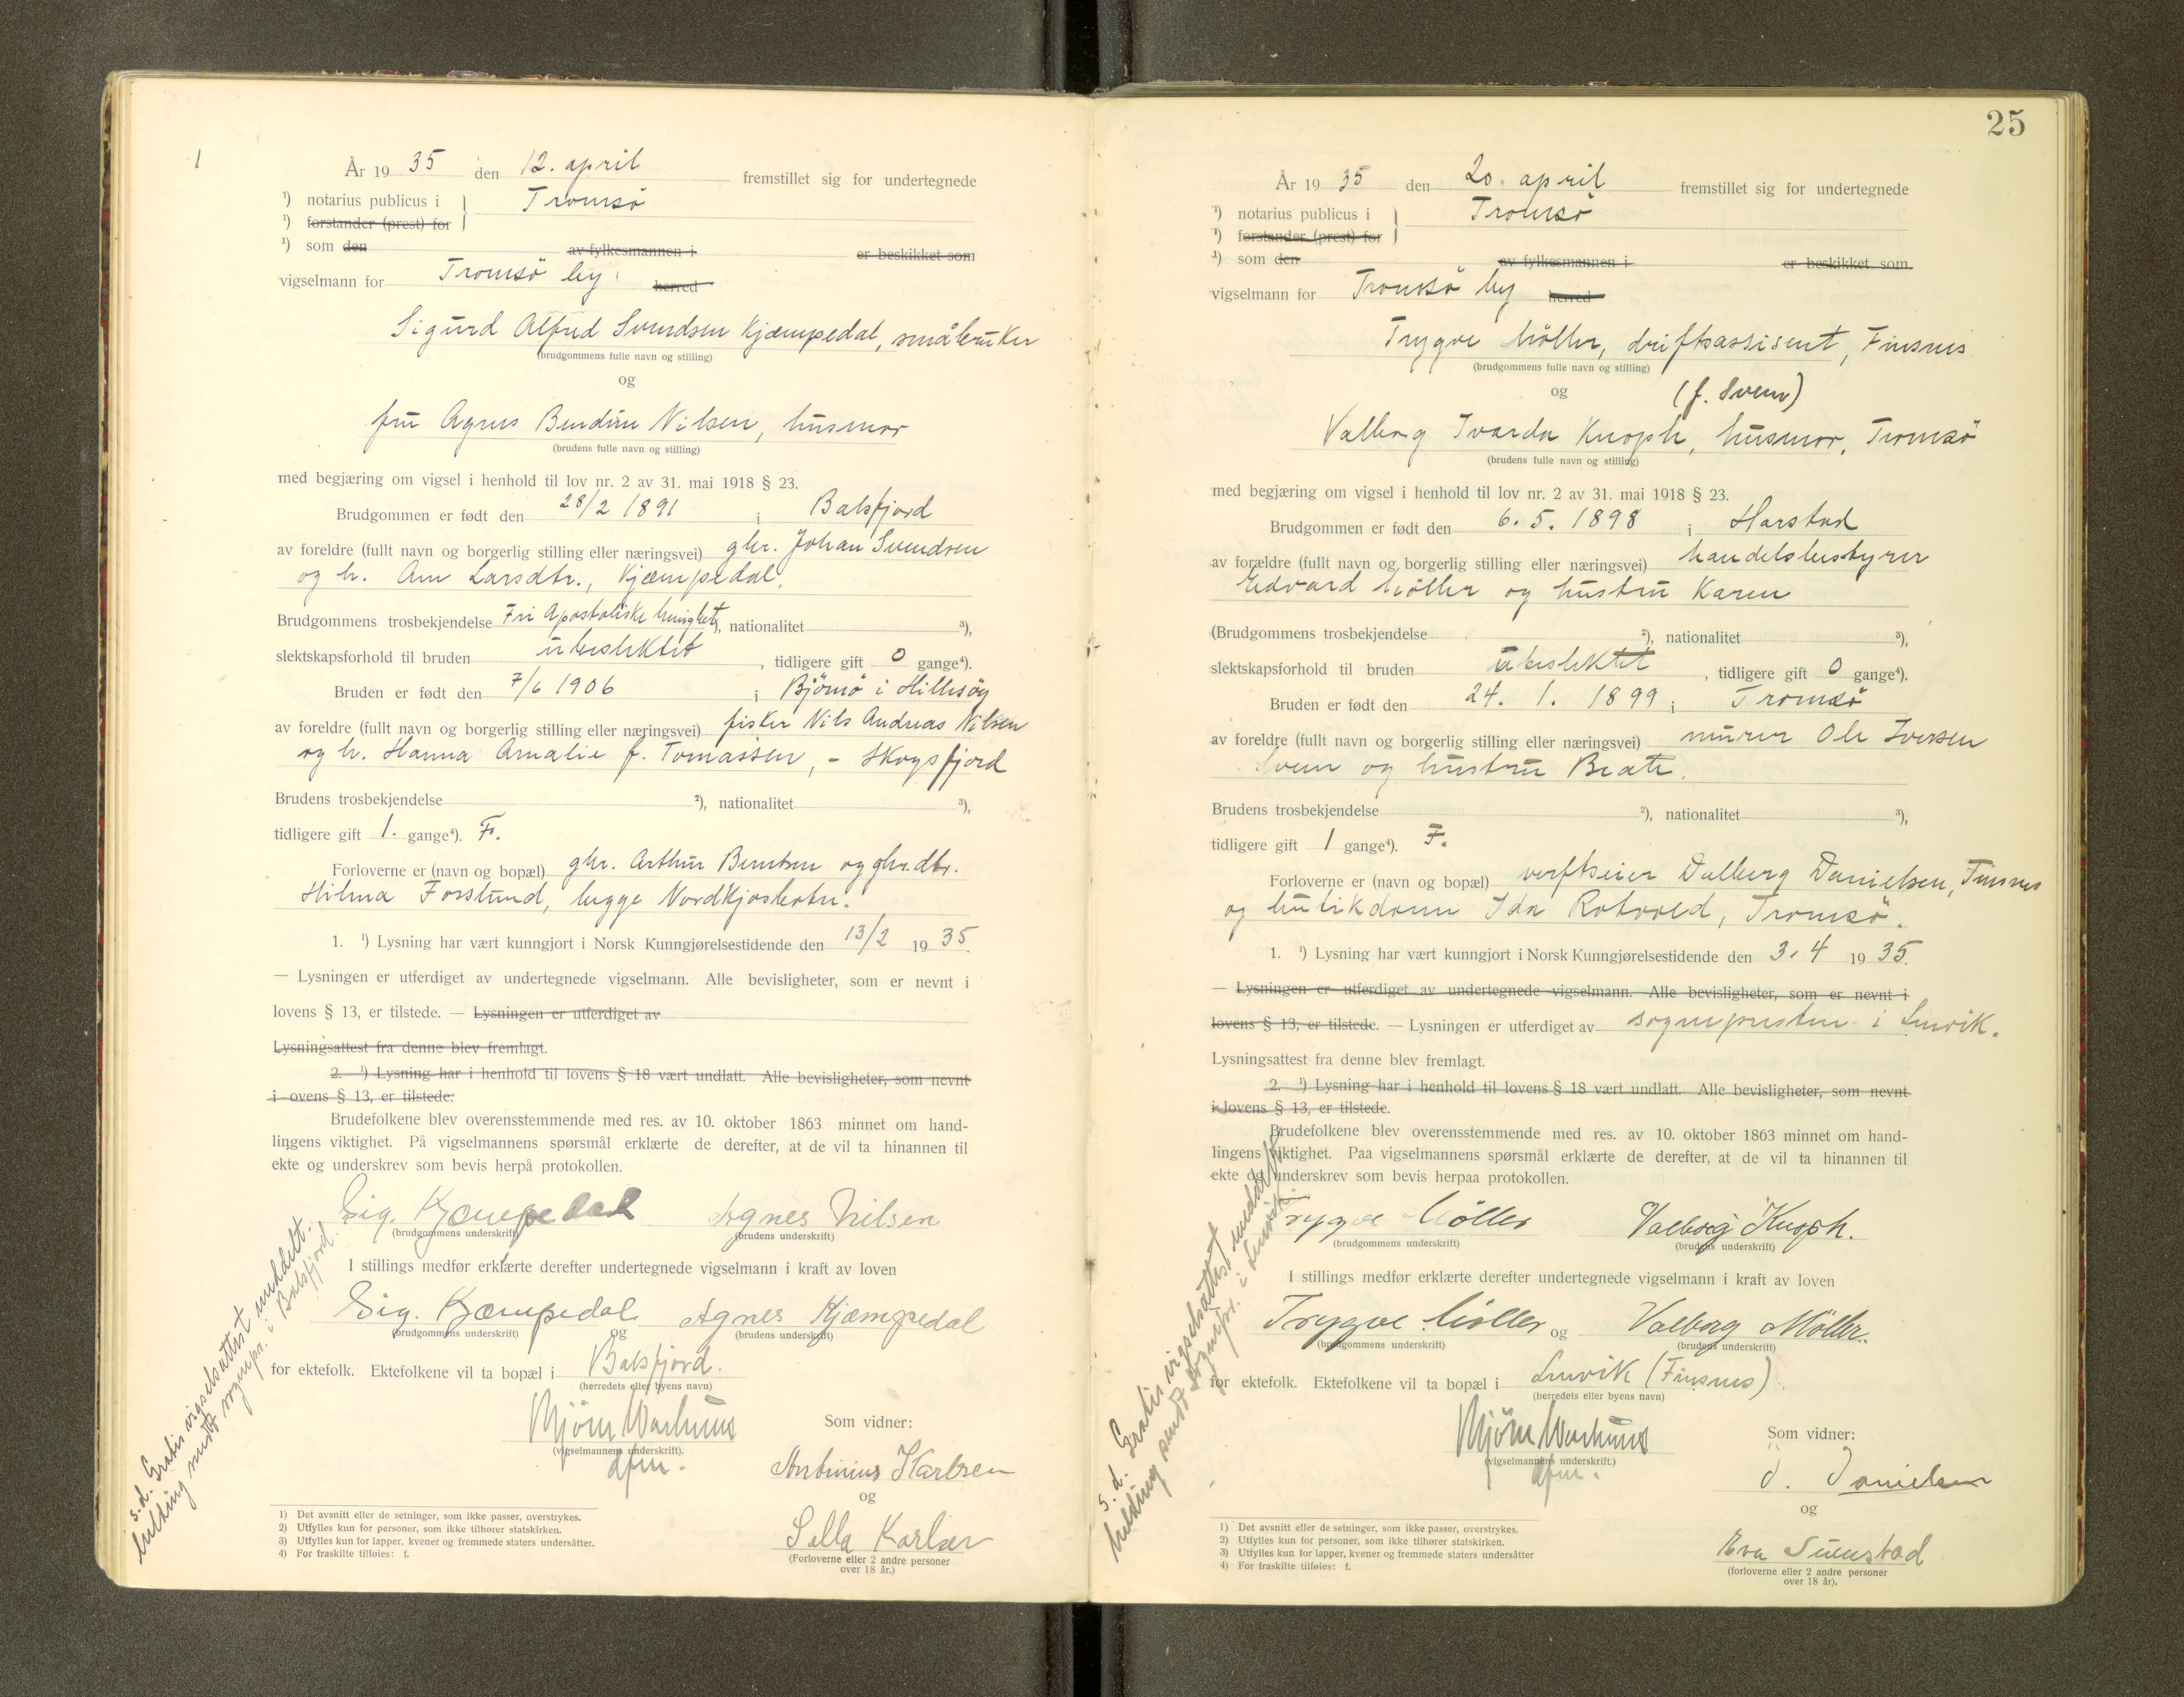 1
År 19 35 den 12. april fremstillet sig for undertegnede
¹) notarius publicus i } Tromsö
¹) forstander (prest) for
¹) som den av fylkesmannen i er beskikket som
vigselmann for Tromsö by herred
Sigurd Alfred Svendsen Kjæmpedal, småbruker
(brudgommens fulle navn og stilling)
og
fru Agnes Bendine Nilsen, husmor
(brudens fulle navn og stilling)
med begjæring om vigsel i henhold til lov nr. 2 av 31. mai 1918 § 23.
Brudgommen er født den 28/2 1891 i Balsfjord
av foreldre (fullt navn og borgerlig stilling eller næringsvei) gbr. Johan Svendsen
og h. Ane Larsdtr., Kjæmpedal.
Brudgommens trosbekjendelse Fri Apostoliske Menighet ²), nationalitet ³),
slektskapsforhold til bruden ubeslektet, tidligere gift 0 gange⁴).
Bruden er født den 7/6 1906 i Björnö i Hillesöy
av foreldre (fullt navn og borgerlig stilling eller næringsvei) fisker Nils Andreas Nilsen
og h. Hanna Amalie f. Tomassen, - Skogsfjord
Brudens trosbekjendelse ²), nationalitet ³),
tidligere gift 1. gange⁴). F.
Forloverne er (navn og bopæl) gbr. Arthur Berntsen og gbr.dtr.
Hilma Forslund, begge Nordkjosbotn.
1. ¹) Lysning har vært kunngjort i Norsk Kunngjørelsestidende den 13/2 19 35.
— Lysningen er utferdiget av undertegnede vigselmann. Alle bevisligheter, som er nevnt i
lovens § 13, er tilstede. — Lysningen er utferdiget av
Lysningsattest fra denne blev fremlagt.
2. ¹) Lysning har i henhold til lovens § 18 vært undlatt. Alle bevisligheter, som nevnt
i ovens § 13, er tilstede.
Brudefolkene blev overensstemmende med res. av 10. oktober 1863 minnet om hand-
lingens viktighet. På vigselmannens spørsmål erklærte de derefter, at de vil ta hinannen til
ekte og underskrev som bevis herpå protokollen.
Sig. Kjæmpedal Agnes Nilsen
(brudgommens underskrift) (brudens underskrift)
I stillings medfør erklærte derefter undertegnede vigselmann i kraft av loven
Sig. Kjæmpedal og Agnes Kjæmpedal
(brudgommens underskrift) (brudens underskrift)
for ektefolk. Ektefolkene vil ta bopæl i Balsfjord.
(herredets eller byens navn)
Björn Warhuus
(vigselmannens underskrift).
dfm.
Som vidner:
Antinius Karlsen
og
Sella Karlsen
(Forloverne eller 2 andre personer
over 18 år.)
s.d. Gratis vigselsattest meddelt.
Melding sendt sognepr. i Balsfjord.
1) Det avsnitt eller de setninger, som ikke passer, overstrykes.
2) Utfylles kun for personer, som ikke tilhører statskirken.
3) Utfylles kun for lapper, kvener og fremmede staters undersåtter.
4) For fraskilte tilføies: f.
25
År 19 35 den 20. april fremstillet sig for undertegnede
¹) notarius publicus i } Tromsö
¹) forstander (prest) for
¹) som den av fylkesmannen i er beskikket som
vigselmann for Tromsö by herred
Trygve Möller, driftsassisent, Finsnes
(brudgommens fulle navn og stilling)
og (f. Sven)
Valborg Ivarda Knoph, husmor, Tromsö
(brudens fulle navn og stilling)
med begjæring om vigsel i henhold til lov nr. 2 av 31. mai 1918 § 23.
Brudgommen er født den 6. 5. 1898 i Harstad
av forældre (fullt navn og borgerlig stilling eller næringsvei) handelsbestyrer
Edvard Möller og hustru Karen
(Brudgommens trosbekjendelse ²), nationalitet ³),
slektskapsforhold til bruden ubeslektet, tidligere gift 0 gange⁴).
Bruden er født den 24. 1. 1899 i Tromsö
av foreldre (fullt navn og borgerlig stilling eller næringsvei) murer Ole Iversen
Sven og hustru Beate.
Brudens trosbekjendelse ²), nationalitet ³),
tidligere gift 1 gange⁴). F.
Forloverne er (navn og bopæl) verftseier Dalberg Danielsen, Finsnes
og butikdame Ida Rotvold, Tromsö.
1. ¹) Lysning har vært kunngjort i Norsk Kunngjørelsestidende den 3. 4 19 35.
— Lysningen er utferdiget av undertegnede vigselmann. Alle bevisligheter, som er nevnt i
lovens § 13, er tilstede. — Lysningen er utferdiget av sognepresten i Lenvik.
Lysningsattest fra denne blev fremlagt.
2. ¹) Lysning har i henhold til lovens § 18 vært undlatt. Alle bevisligheter, som nevnt
i lovens § 13, er tilstede.
Brudefolkene blev overensstemmende med res. av 10. oktober 1863 minnet om hand-
lingens viktighet. Paa vigselmannens spørsmål erklærte de derefter, at de vil ta hinannen til
ekte og underskrev som bevis herpaa protokollen.
Trygve Möller Valborg Knoph.
(brudgommens underskrift) (brudens underskrift)
I stillings medfør erklærte derefter undertegnede vigselmann i kraft av loven
Trygve Möller og Valborg Möller.
(brudgommens underskrift) (brudens underskrift)
for ektefolk. Ektefolkene vil ta bopæl i Lenvik (Finsnes)
(herredets eller byens navn)
Björn Warhuus
(vigselmannens underskrift.)
dfm.
Som vidner:
D. Danielsen
og
Eva
(forloverne eller 2 andre personer
over 18 år).
s.d. Gratis vigselsattest meddelt
Melding sendt sognepr. i Lenvik
1) Det avsnitt eller de setninger, som ikke passer, overstrykes.
2) Utfylles kun for personer, som ikke tilhører statskirken.
3) Utfylles kun for lapper, kvener og fremmede staters undersåtter
4) For fraskilte tilføies: f.